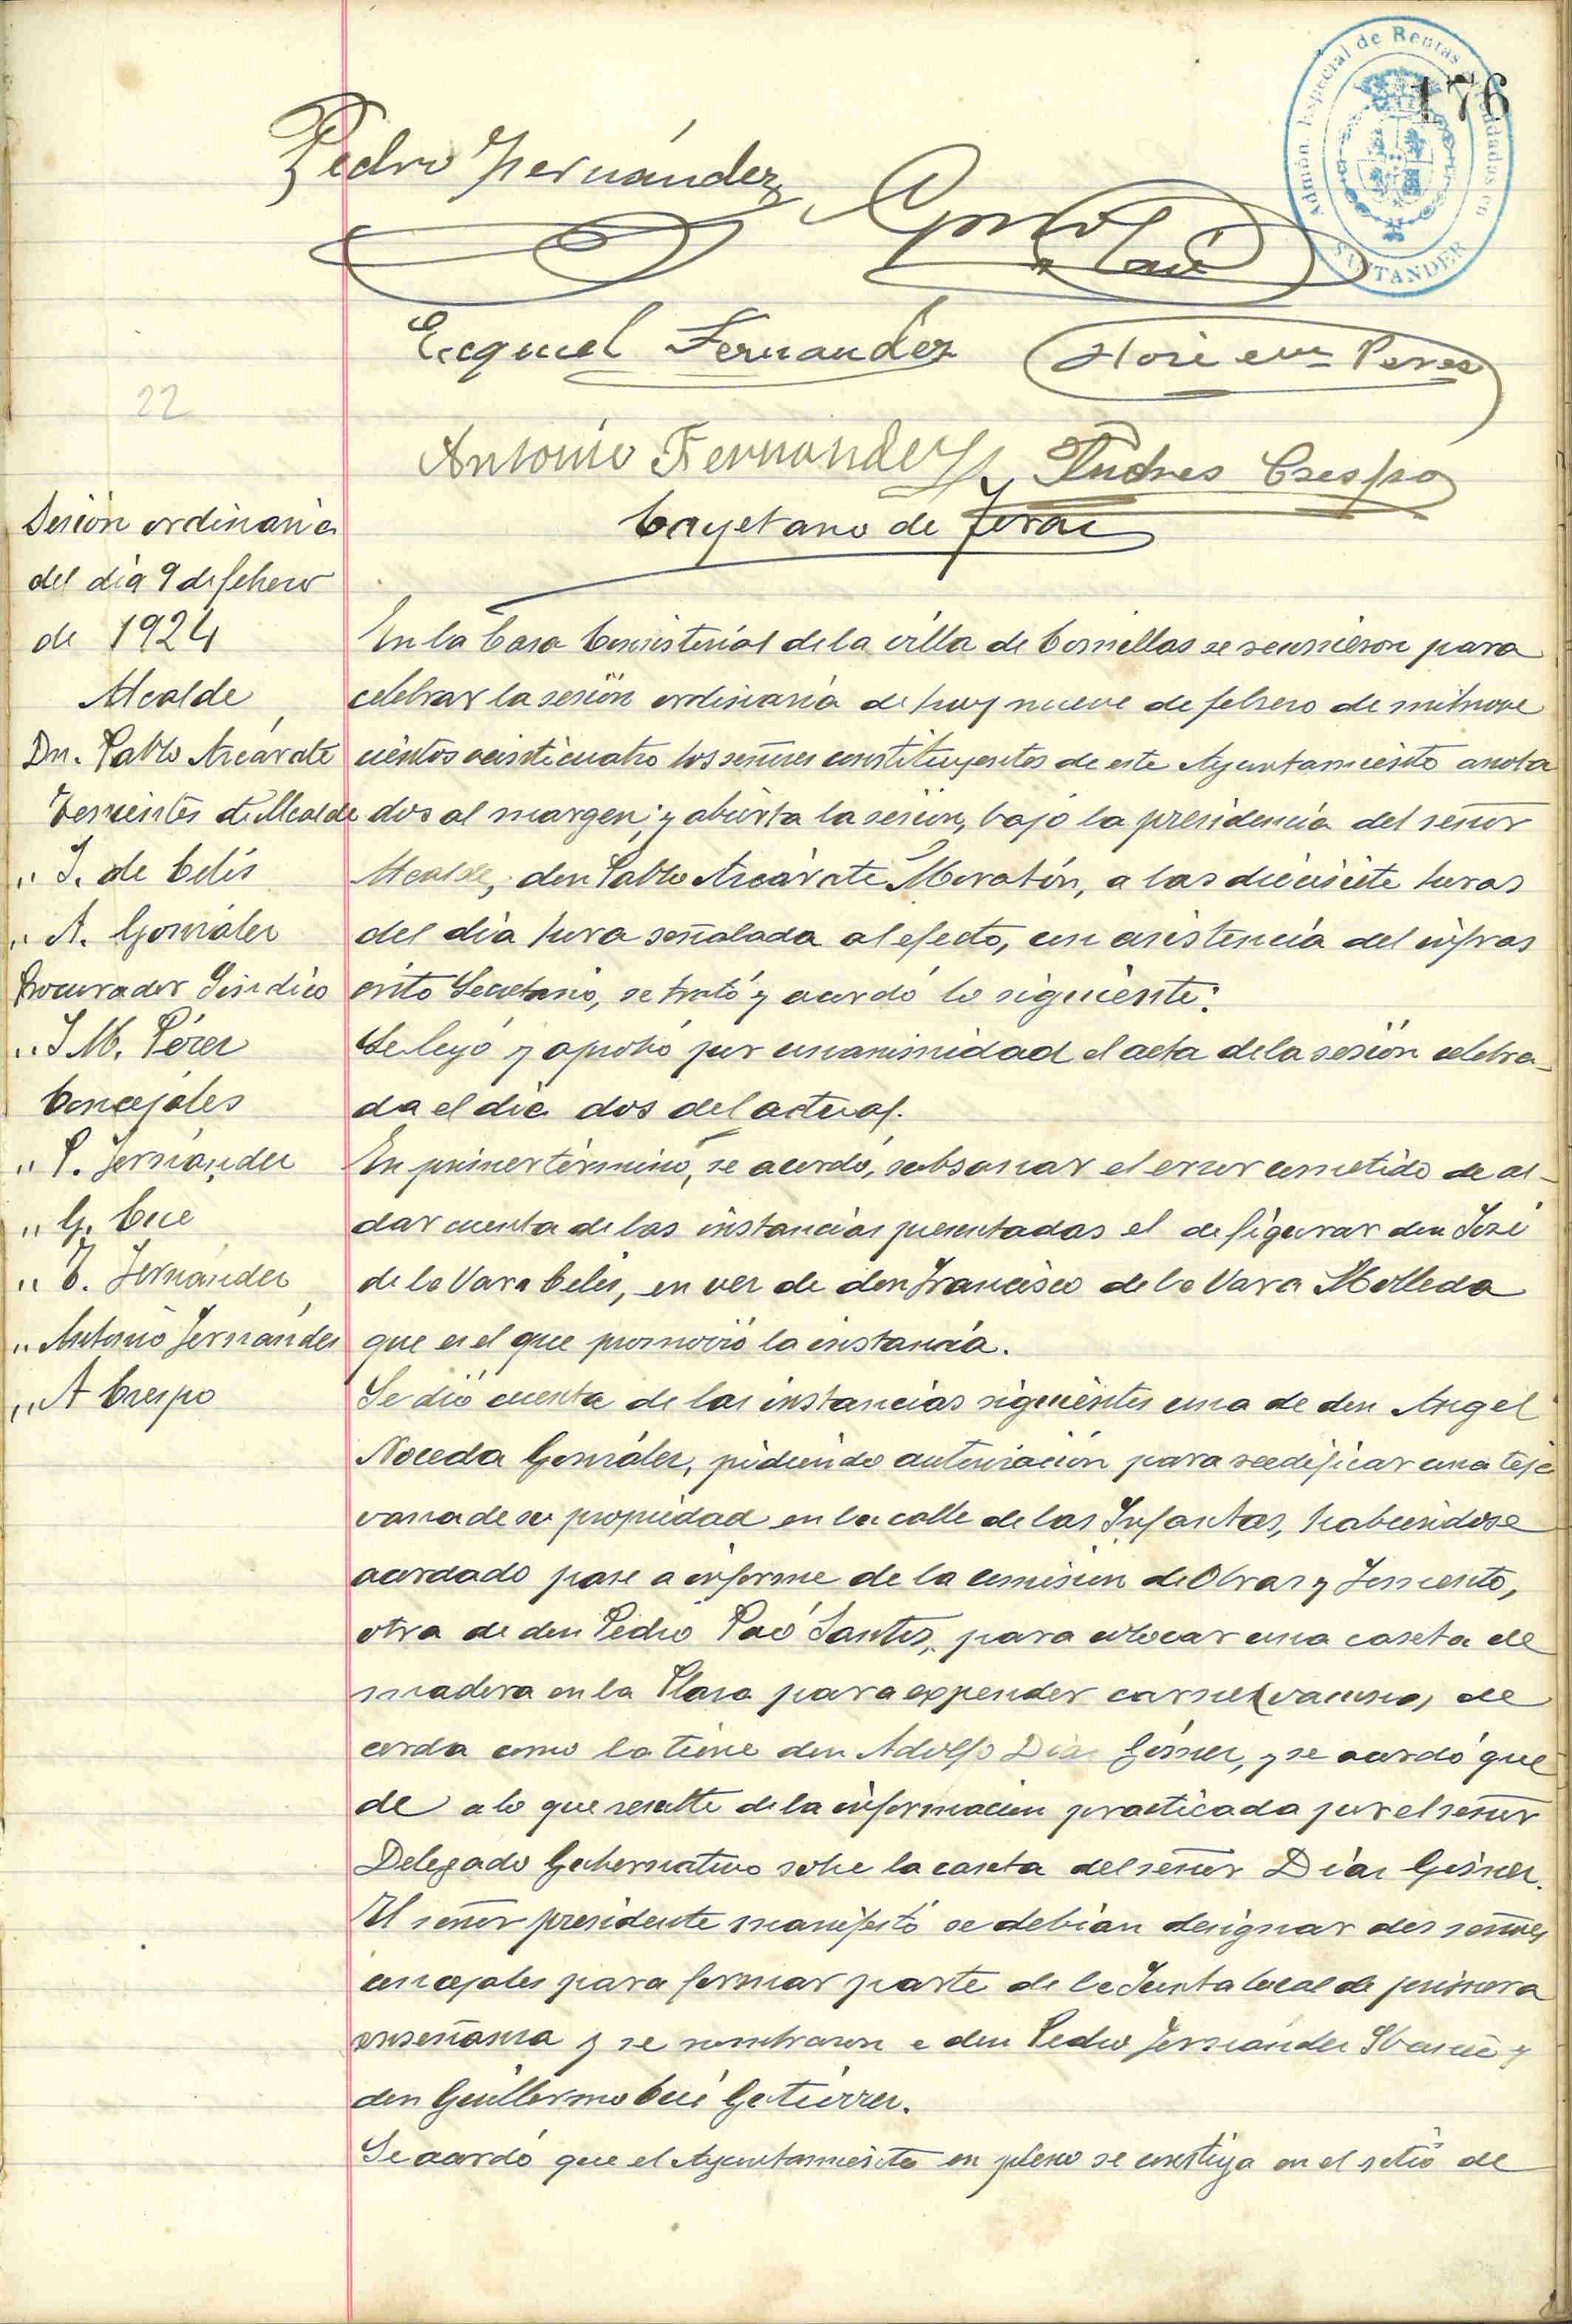 Admón. Especial de Rentas
en
SANTANDER
176
Pedro Fernández
Ecequiel Fernandez
Antonio Fernandez
Andres Crespo
Cayetano de
22
Sesión ordinaria
del dia 9 de febrero
de 1924
Alcalde
Dn. Pablo Azcárate
Tenientes de Alcalde
" J. de Celis
" A. González
Procurador Síndico
" J M. Pérez
Concejales
" P. Fernández
" G. Cue
" E. Fernández
" Antonio Fernández
" A Crespo
En la Casa Consistorial de la villa de Comillas se reunieron para
celebrar la sesión ordinaria de hoy nueve de febrero de mil nove
cientos veinticuatro los señores constituyentes de este Ayuntamiento anota
dos al margen; y abierta la sesión, bajo la presidencia del señor
Alcalde, don Pablo Azcárate Moratón, a las diecisiete horas
del día hora señalada al efecto, con asistencia del infras
crito Secretario, se trató y acordó lo siguiente:
Se leyó y aprobó por unanimidad el acta de la sesión celebra-
da el dia dos del actual.
En primer término, se acordó, subsanar el error cometido de al-
dar cuenta de las instancias presentadas el de figurar don José
de la Vara Celis, en vez de don Francisco de la Vara Molleda
que es el que promovió la instancia.
Se dió cuenta de las instancias siguientes una de don Angel
Noceda González, pidiendo autorización para reedificar una teja
vana de su propiedad en la calle de las Infantas, habiendose
acordado pase a informe de la comision de Obras y Fomento,
otra de don Pedro Poo Santos, para colocar una caseta de
madera en la Plaza para expender carne (vacuno) de
cerda como la tiene don Adolfo Diaz Gómez, y se acordó que
de a lo que resulte de la informacion practicada por el señor
Delegado Gubernativo sobre la caseta del señor Diaz Gómez.
El señor presidente manifestó se debian designar dos señores
concejales para formar parte de la Junta local de primera
enseñanza y se nombraron a don Pedro Fernández y
don Guillermo Cué Gutiérrez.
Se acordó que el Ayuntamiento en pleno se constituya en el sitio de